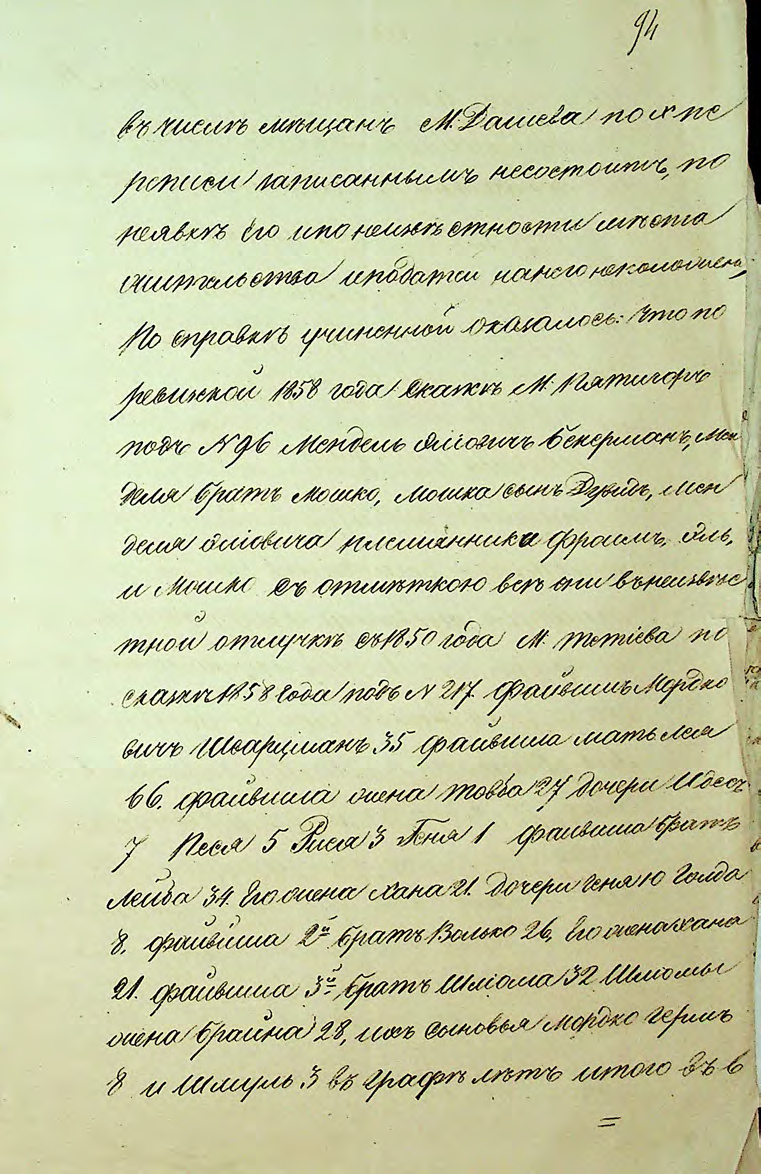 94
въ числѣ мѣщанъ М. Дашева по X пе
реписи записаннымъ несостоитъ, по
неявкѣ его и по неизвѣстности мѣста
жительства и податей на него неположено,
По справкѣ учиненной оказалось: что по
ревизской 1858 года сказкѣ М. Пятигоръ
подъ N 96 Мендель Янювичъ Бекерманъ, Мен
деля братъ Мошко, Мошка сынъ Дувидъ, Мен
деля племянники Фроимъ, Эль,
и Мошко съ отмѣткою всѣ они въ неизвѣс
тной отлучкѣ съ 1850 года М. Тетіева по
сказкѣ 1858 года подъ N 217. Файвишъ Мордко
вичъ Шварцманъ 35 Файвиша мать Лея
66. Файвиша жена Товба 27 дочери Идесъ
7 Песя 5 Рися 3 Геня 1 Файвиша братъ
Лейба 34. Его жена Хана 21. дочери Геня 10 Голда
8. Файвиша 2й братъ Волько 26, Его жена Хана
21. Файвиша 3й братъ Шліома 32 Шліомы
жена Брайна 28, ихъ сыновья Мордко Гершъ
8 и Шмуль 3 въ графѣ лѣтъ итого въ 6
=